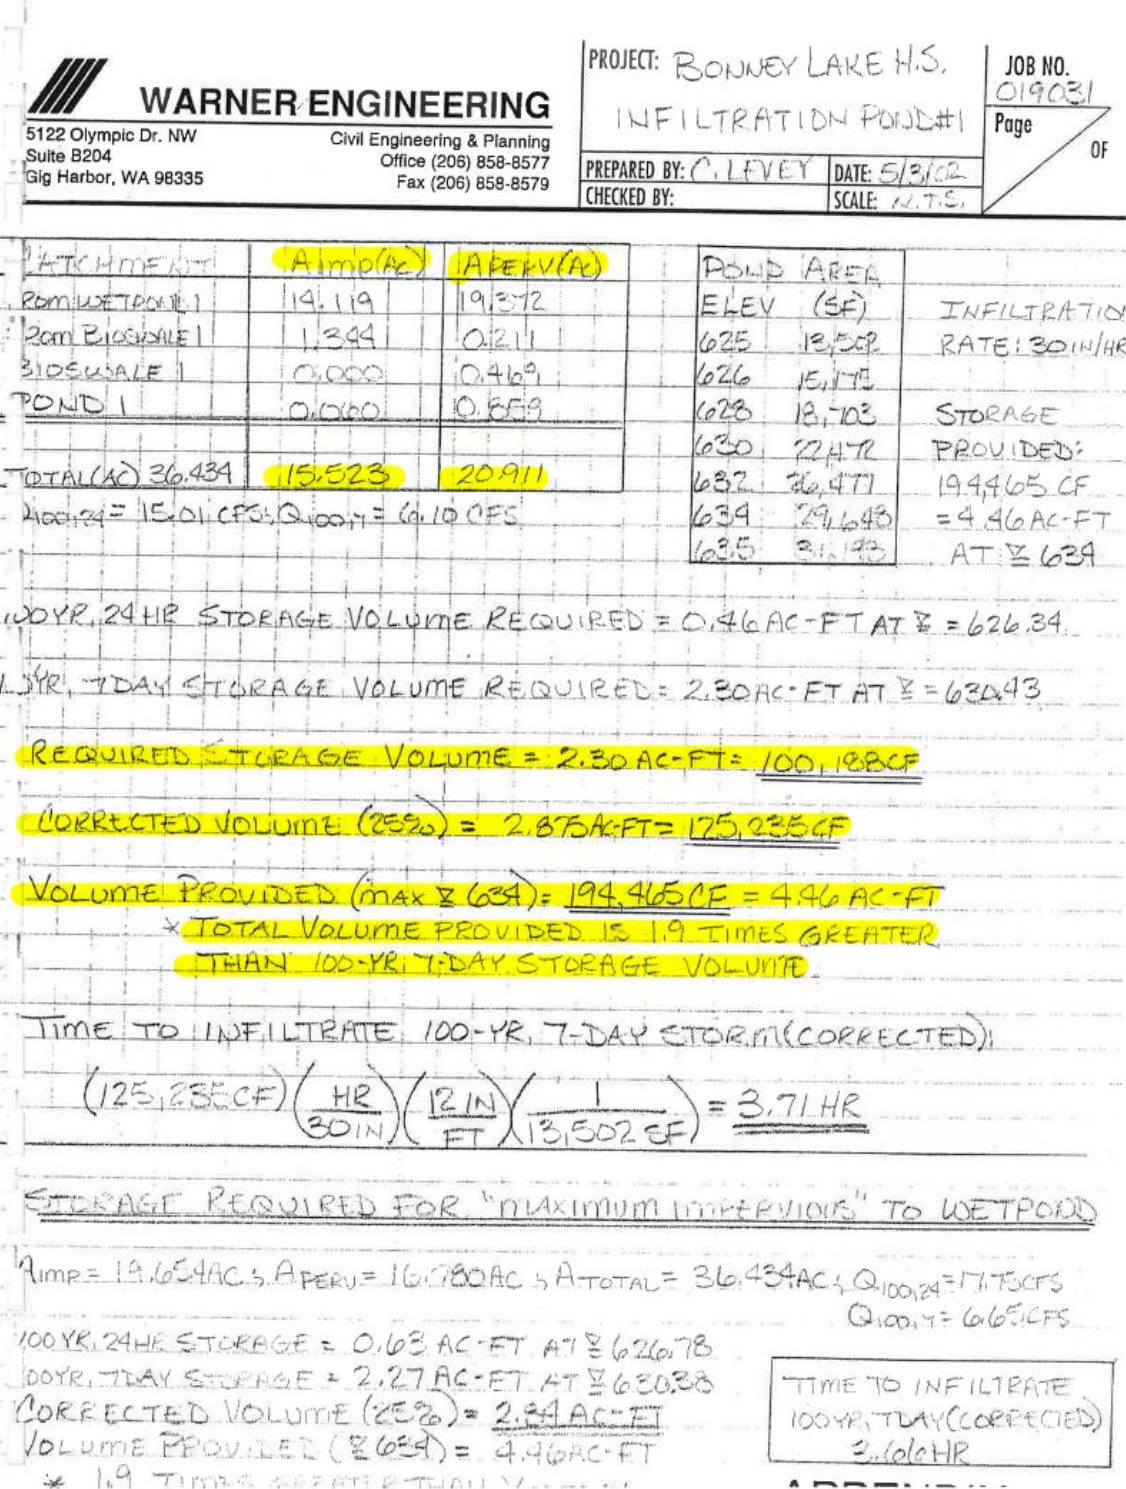 WARNER ENGINEERING
5122 Olympic Dr. NW
Suite B204
Gig Harbor, WA 98335
Civil Engineering & Planning
Office (206) 858-8577
Fax (206) 858-8579
PROJECT: BONNEY LAKE H.S.
INFILTRATION POND#1
PREPARED BY: C. LEVEY
DATE: 5/3/02
CHECKED BY:
SCALE: N.T.S.
JOB NO.
019031
Page
OF
CATCHMENT AIMP(AC) APERV(AC)
ROM WETPOND 1 14.119 19.372
ROM BIOSWALE 1 1.344 0.211
BIOSWALE 1 0.000 0.469
POND 1 0.060 0.859
TOTAL(AC) 36.434 15.523 20.911
Q100,24= 15.01 CFS; Q100,7= 6.10 CFS
POND AREA
ELEV (SF)
625 13,502
626 15,175
628 18,703
630 22,472
632 26,477
634 29,643
635
INFILTRATION
RATE: 30 IN/HR
STORAGE
PROVIDED:
194,465 CF
= 4.46 AC-FT
AT ∇ 634
00YR, 24 HR STORAGE VOLUME REQUIRED = 0.46 AC-FT AT ∇ = 626.34
YR, 7DAY STORAGE VOLUME REQUIRED= 2.30 AC-FT AT ∇ = 630.43
REQUIRED STORAGE VOLUME = 2.30 AC-FT= 100,188CF
CORRECTED VOLUME (25%) = 2.875AC-FT= 125,235CF
VOLUME PROVIDED (MAX ∇ 634)= 194,465 CF = 4.46 AC-FT
* TOTAL VOLUME PROVIDED IS 1.9 TIMES GREATER
THAN 100-YR, 7-DAY STORAGE VOLUME.
TIME TO INFILTRATE 100-YR, 7-DAY STORM(CORRECTED):
(125,235CF)(HR/30IN)(12 IN/FT)(1/13,502 SF) = 3.71 HR
STORAGE REQUIRED FOR "MAXIMUM IMPERVIOUS" TO WETPOND
AIMP= 19.654AC; APERV= 16.780AC; ATOTAL= 36.434AC; Q100,24=17.75CFS
Q100,7= 6.65CFS
100 YR, 24HR STORAGE = 0.63 AC-FT AT ∇ 626.78
00YR, 7DAY STORAGE = 2.27 AC-FT AT ∇ 630.38
CORRECTED VOLUME (25%)= 2.84 AC-FT
VOLUME PROVIDED (∇ 634) = 4.46AC-FT
* 1.9 TIMES GREATER THAN
TIME TO INFILTRATE
100YR, 7DAY (CORRECTED)
3.66HR